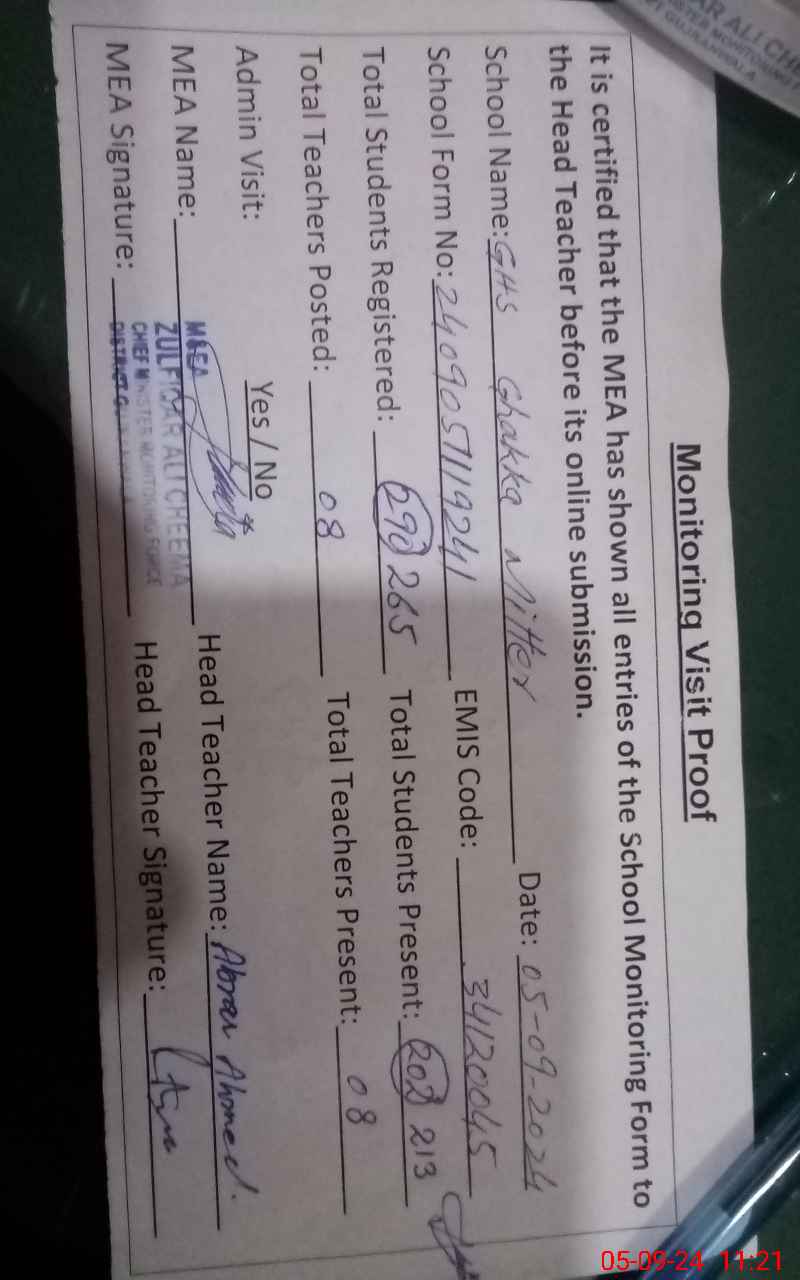 Monitoring Visit Proof
It is certified that the MEA has shown all entries of the School Monitoring Form to
the Head Teacher before its online submission.
School Name: GHS Ghakka Mitter Date: 05-09-2024
School Form No: 2409051119241 EMIS Code: 34120045
Total Students Registered: 290 265 Total Students Present: 202 213
Total Teachers Posted: 08 Total Teachers Present: 08
Admin Visit: Yes / No
MEA Name: Head Teacher Name: Abrar Ahmed.
MEA Signature: Head Teacher Signature:
M&EA
ZULFIQAR ALI CHEEMA
CHIEF MINISTER MONITORING FORCE
DISTRICT GUJRANWALA
AR ALI CHE
ISTER MONITORING F
CT GUJRANWALA
05-09-24 11:21